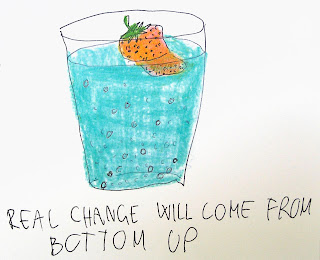 REAL CHANGE WILL COME FROM
BOTTOM UP